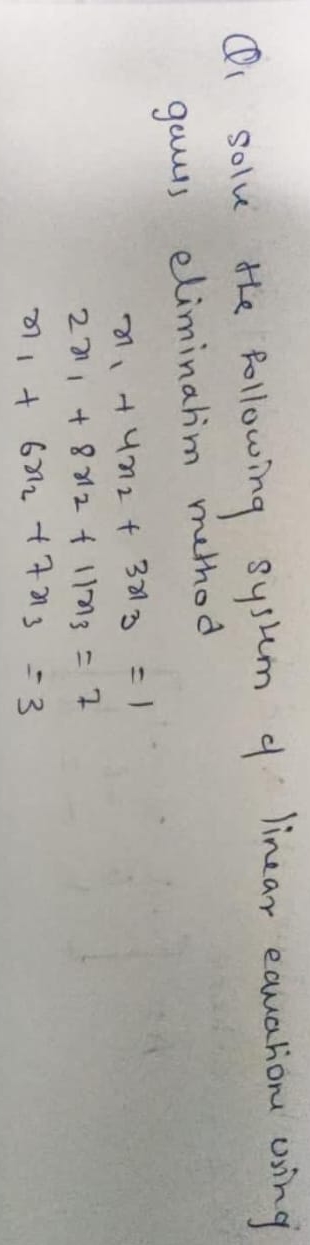 Q1 Solve the following system of linear equations using
gauss elimination method
x1 + 4x2 + 3x3 = 1
2x1 + 8x2 + 11x3 = 7
x1 + 6x2 + 7x3 = 3